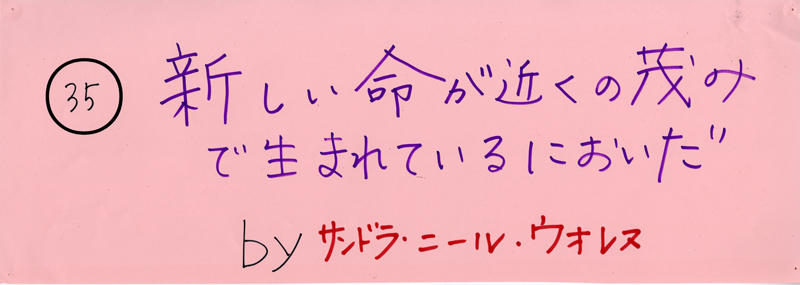 35 新しい命が近くの茂み
で生まれているにおいだ”
by サンドラ・ニール・ウオレス